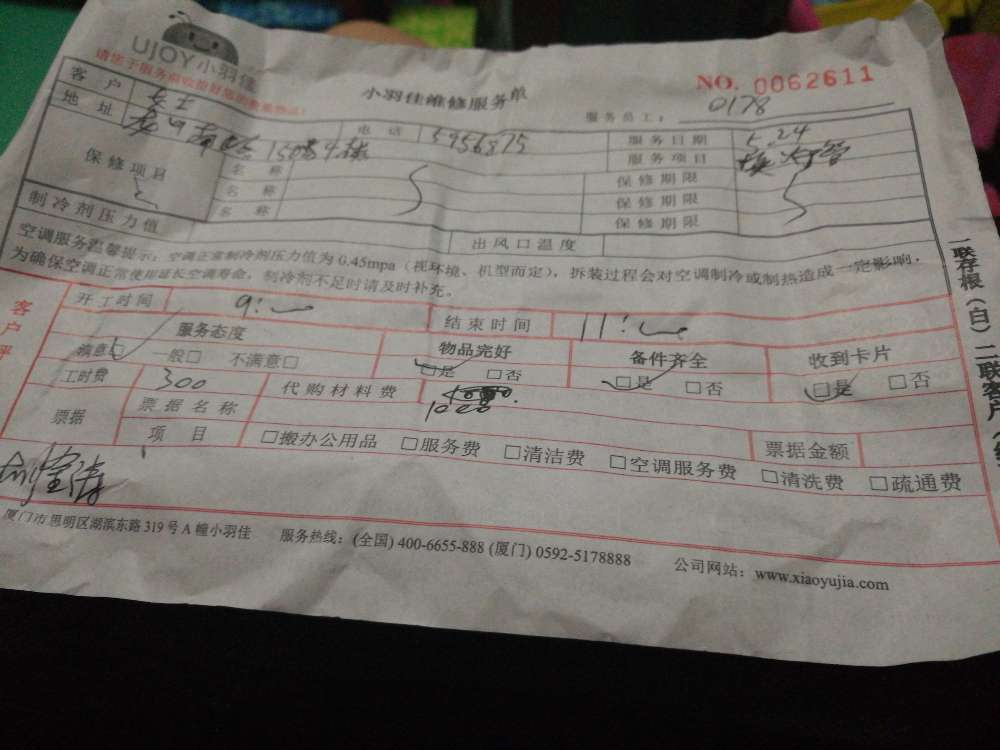 UJOY小羽佳
请您于服务验收前仔细
小羽佳维修服务单
NO. 0062611
服务员工: 0178
客户 女士 电话 5956875 服务日期 5.24
地址 150号9楼 服务项目
保修项目 名称 保修期限
名称 保修期限
名称 保修期限
制冷剂压力值 出风口温度
空调服务温馨提示:空调正常制冷剂压力值为0.45mpa(视环境、机型而定),拆装过程会对空调制冷或制热造成一定影响,
为确保空调正常使用延长空调寿命,制冷剂不足时请及时补充。
开工时间 9: 结束时间 11:
客户评
服务态度 物品完好 备件齐全 收到卡片
满意□ 一般□ 不满意□ □是 □否 □是 □否 □是 □否
工时费 300 代购材料费 1000
票据 票据名称
项目 □搬办公用品 □服务费 □清洁费 □空调服务费 □清洗费 □疏通费
票据金额
厦门市思明区湖滨东路319号A幢小羽佳 服务热线:(全国) 400-6655-888 (厦门) 0592-5178888 公司网站:www.xiaoyujia.com
一联存根(白)二联客户(